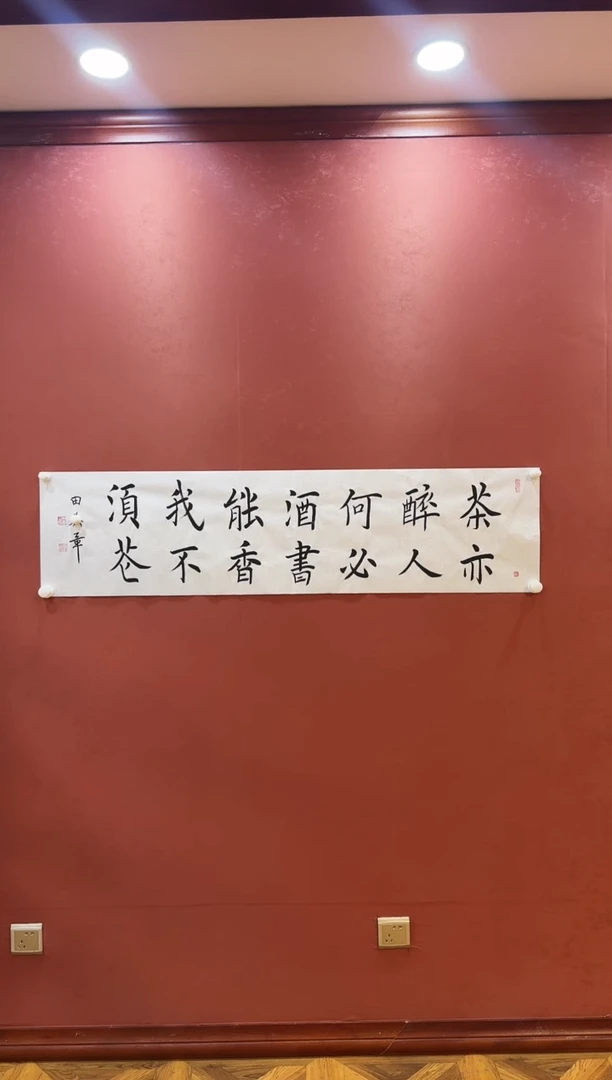 茶亦
醉人
何必
酒書
能香
我不
須花
田英章